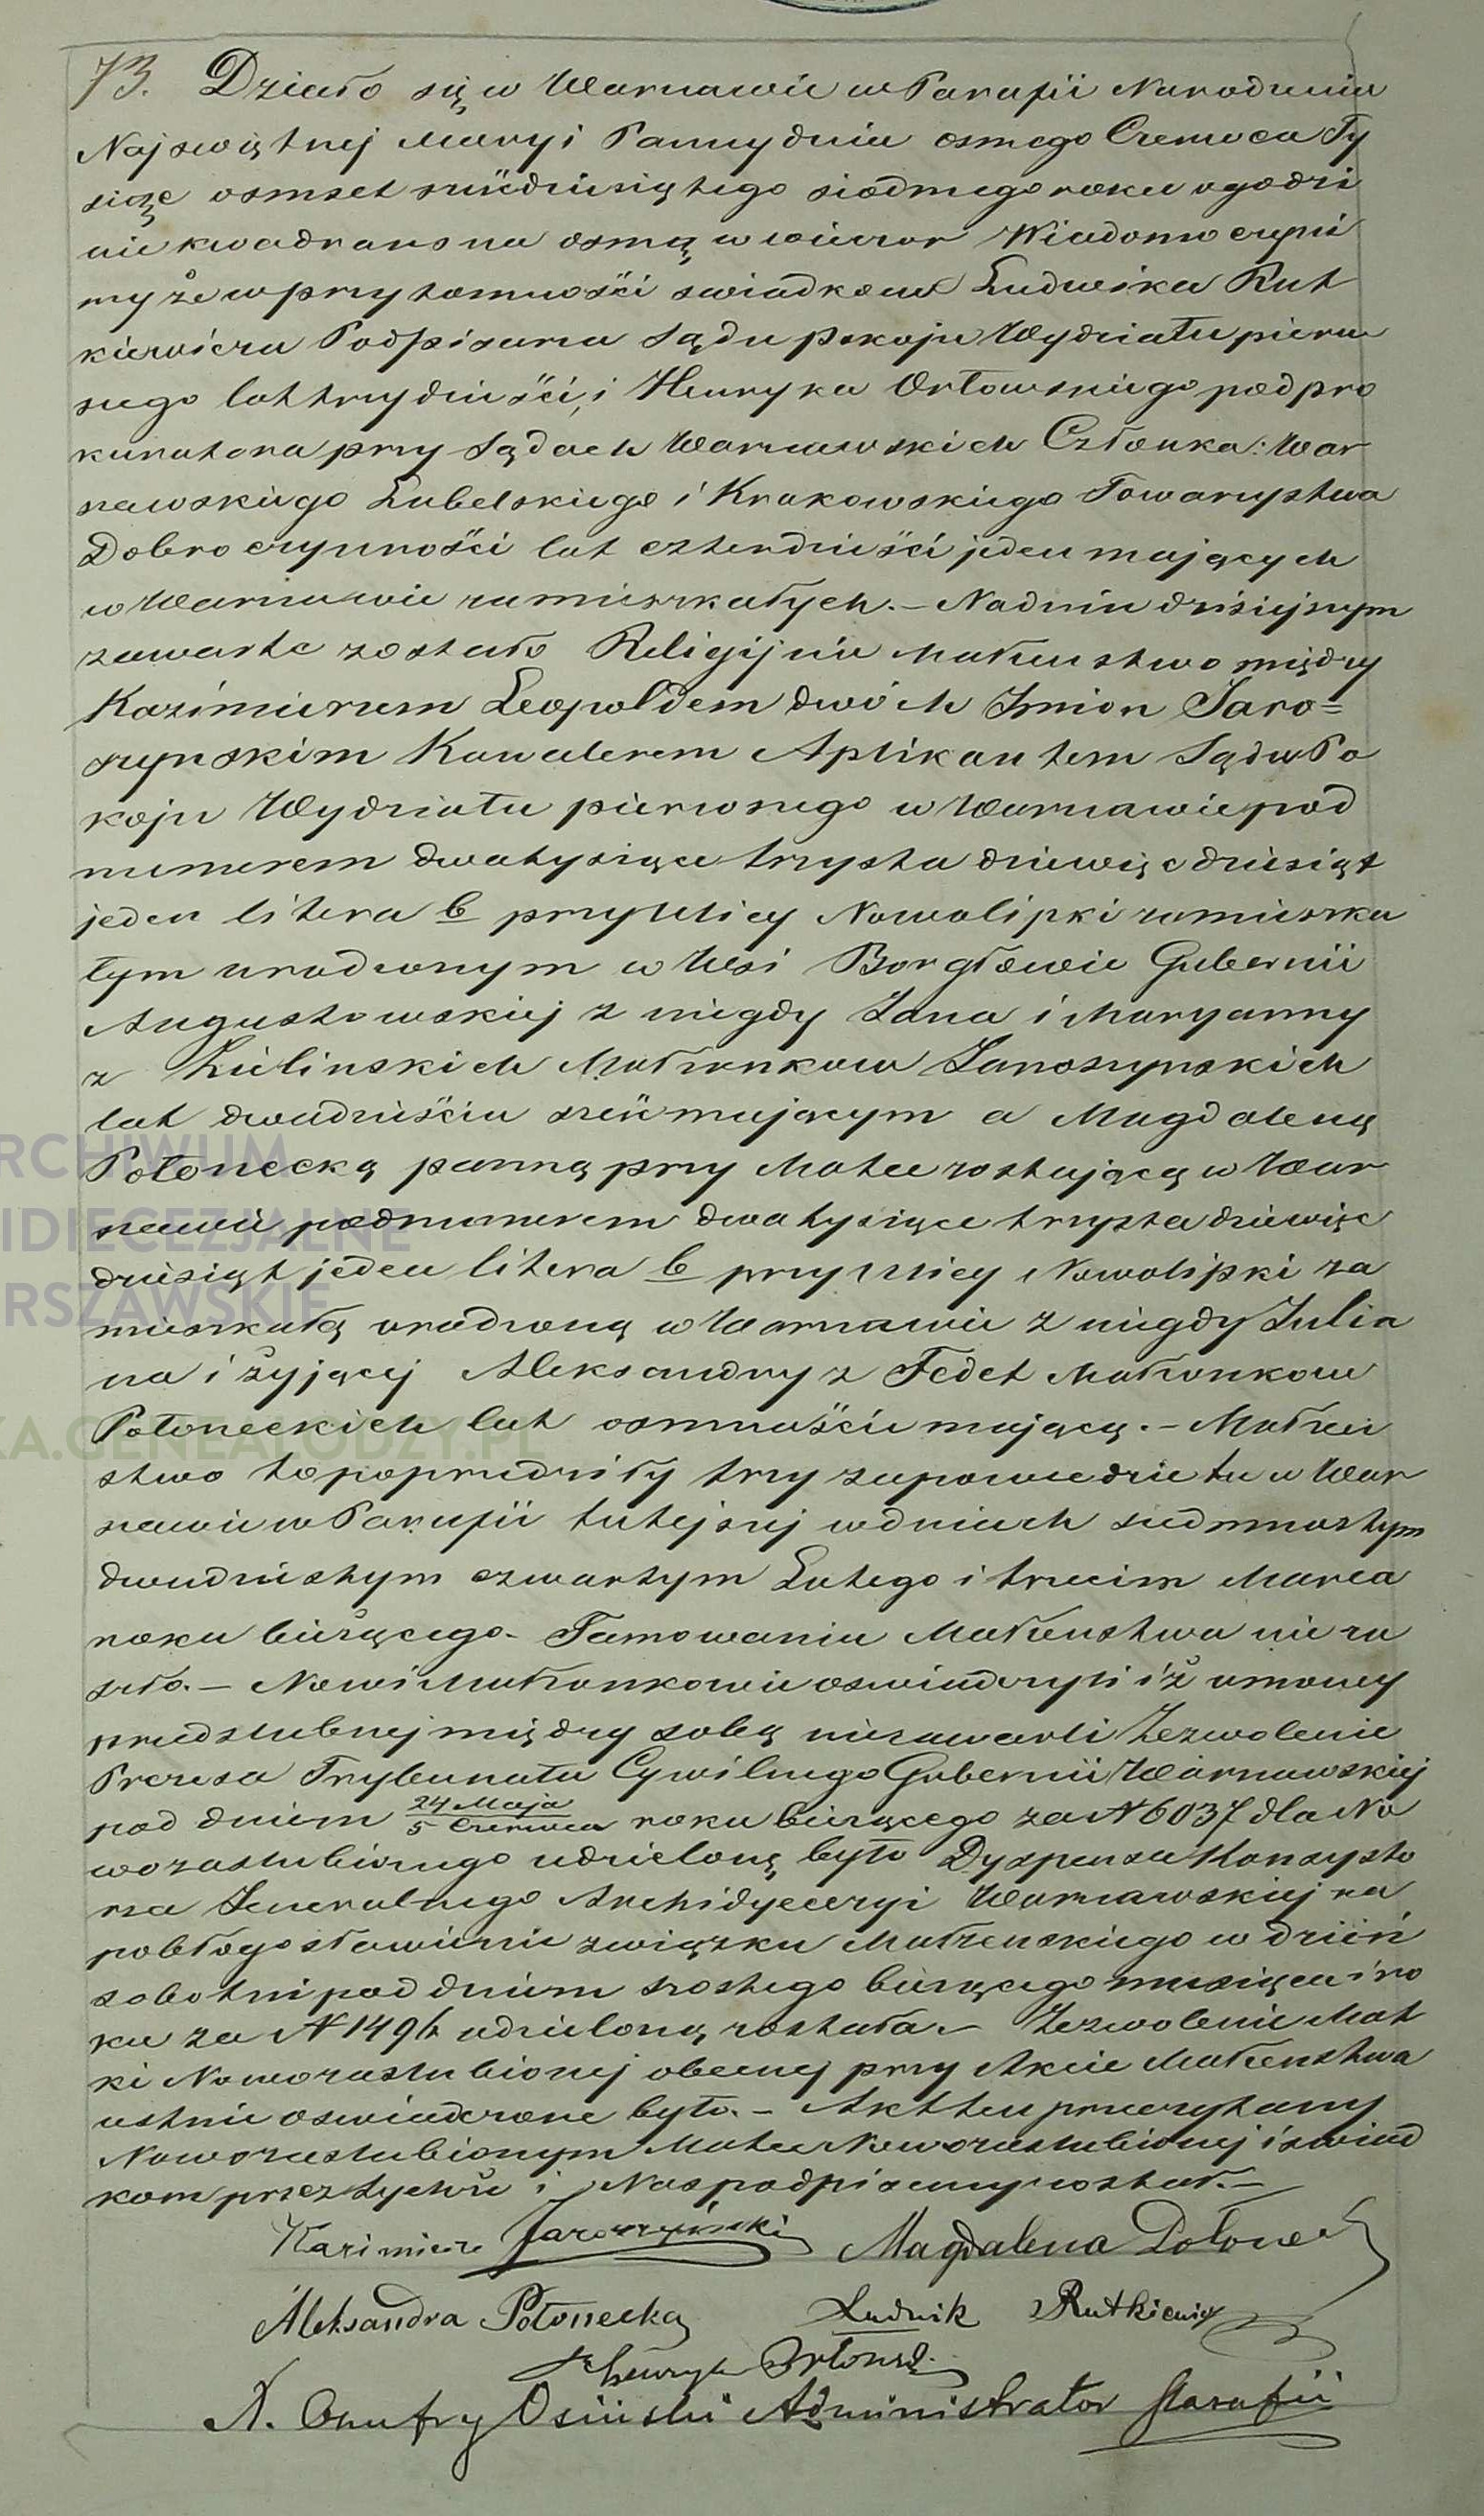 73. Działo się w Warszawie w Parafii Narodzenia
Najświętszej Maryi Panny dnia osmego Czerwca Ty
siąc osmset sześćdziesiątego siodmego roku o godzi
nie kwadrans na osmą w wieczor Wiadomo czyni
my że w przytomności swiadkow Ludwika Rut
kiewicza Podpisarza Sądu Pokoju Wydziału pierw
szego lat trzydzieści, i Henryka Orłowskiego podpro
kuratora przy Sądach Warszawskich Członka: War
szawskiego Lubelskiego i Krakowskiego Towarzystwa
Dobroczynności lat czterdzieści jeden mających
w Warszawie zamieszkałych. – Na dniu dzisiejszym
zawarte zostało Religijnie Małżeństwo między
Kazimierzem Leopoldem dwóch Imion Jaro=
szynskim Kawalerem Aplikantem Sądu Po
koju Wydziału pierwszego w Warszawie pod
numerem dwatysiące trzysta dziewięcdziesiąt
jeden litera b przy Ulicy Nowolipki zamieszka
łym urodzonym w Wsi Borgłowie Gubernii
Augustowskiej z niegdy Jana i Maryanny
z Zielinskich Małżonkow Jaroszynskich
lat dwadzieścia sześć mającym a Magdaleną
Połonecką panną przy Matce zostającą w War
szawie pod numerem dwatysiące trzysta dziewięc
dziesiąt jeden litera b przy Ulicy Nowolipki za
mieszkałą urodzoną w Warszawie z niegdy Julia
na i żyjącej Aleksandry z Fedet Małżonkow
Połoneckich lat osmnaście mającą. – Małżeń
stwo to poprzedziły trzy zapowiedzie tu w War
szawie w Parafii tutejszej w dniach siedmnastym
dwudziestym czwartym Lutego i trzecim Marca
roku bieżącego. Tamowania Małżeństwa nie za
szło. – Nowi Małżonkowie oswiadczyli iż umowy
przedslubnej między sobą niezawarli Zezwolenie
Prezesa Trybunału Cywilnego Gubernii Warszawskiej
pod dniem 24 Maja / 5 Czerwca roku bieżącego za N 6037 dla No
wozaslubionego udzieloną było Dyspensa Konsysto
rza Jeneralnego Archidyecezyi Warszawskiej na
pobłogosławienie związku Małżenskiego w dzień
sobotni pod dniem szostego bieżącego miesiąca i ro
ku za N 1496 udzieloną została. – Zezwolenie Mat
ki Nowozaslubionej obecnej przy Akcie Małżenstwa
ustnie oswiadczone było. – Akt ten przeczytany
Nowozaslubionym Matce Nowozaslubionej i swiad
kom przez tychże i Nas podpisany został. –
Kazimierz Jaroszyński Magdalena Połonec
Aleksandra Połonecka Ludwik Rutkiewicz
Henryk Orłowski
X. Onufry Osiński Administrator Parafii
ARCHIWUM
IDIECEZJALNE
RSZAWSKIE
KA.GENEALODZY.PL